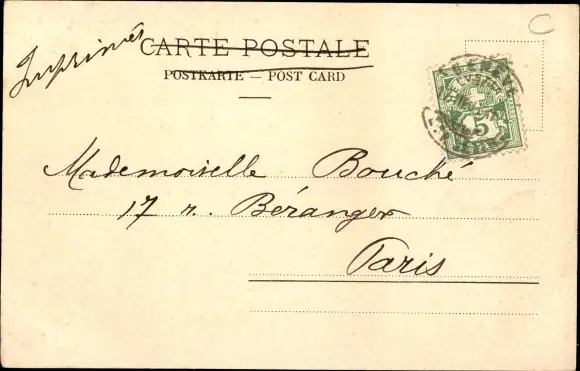 Imprimés
CARTE POSTALE
POSTKARTE — POST CARD
C
HELVETIA
5
Mademoiselle Bouché
17 r. Béranger
Paris